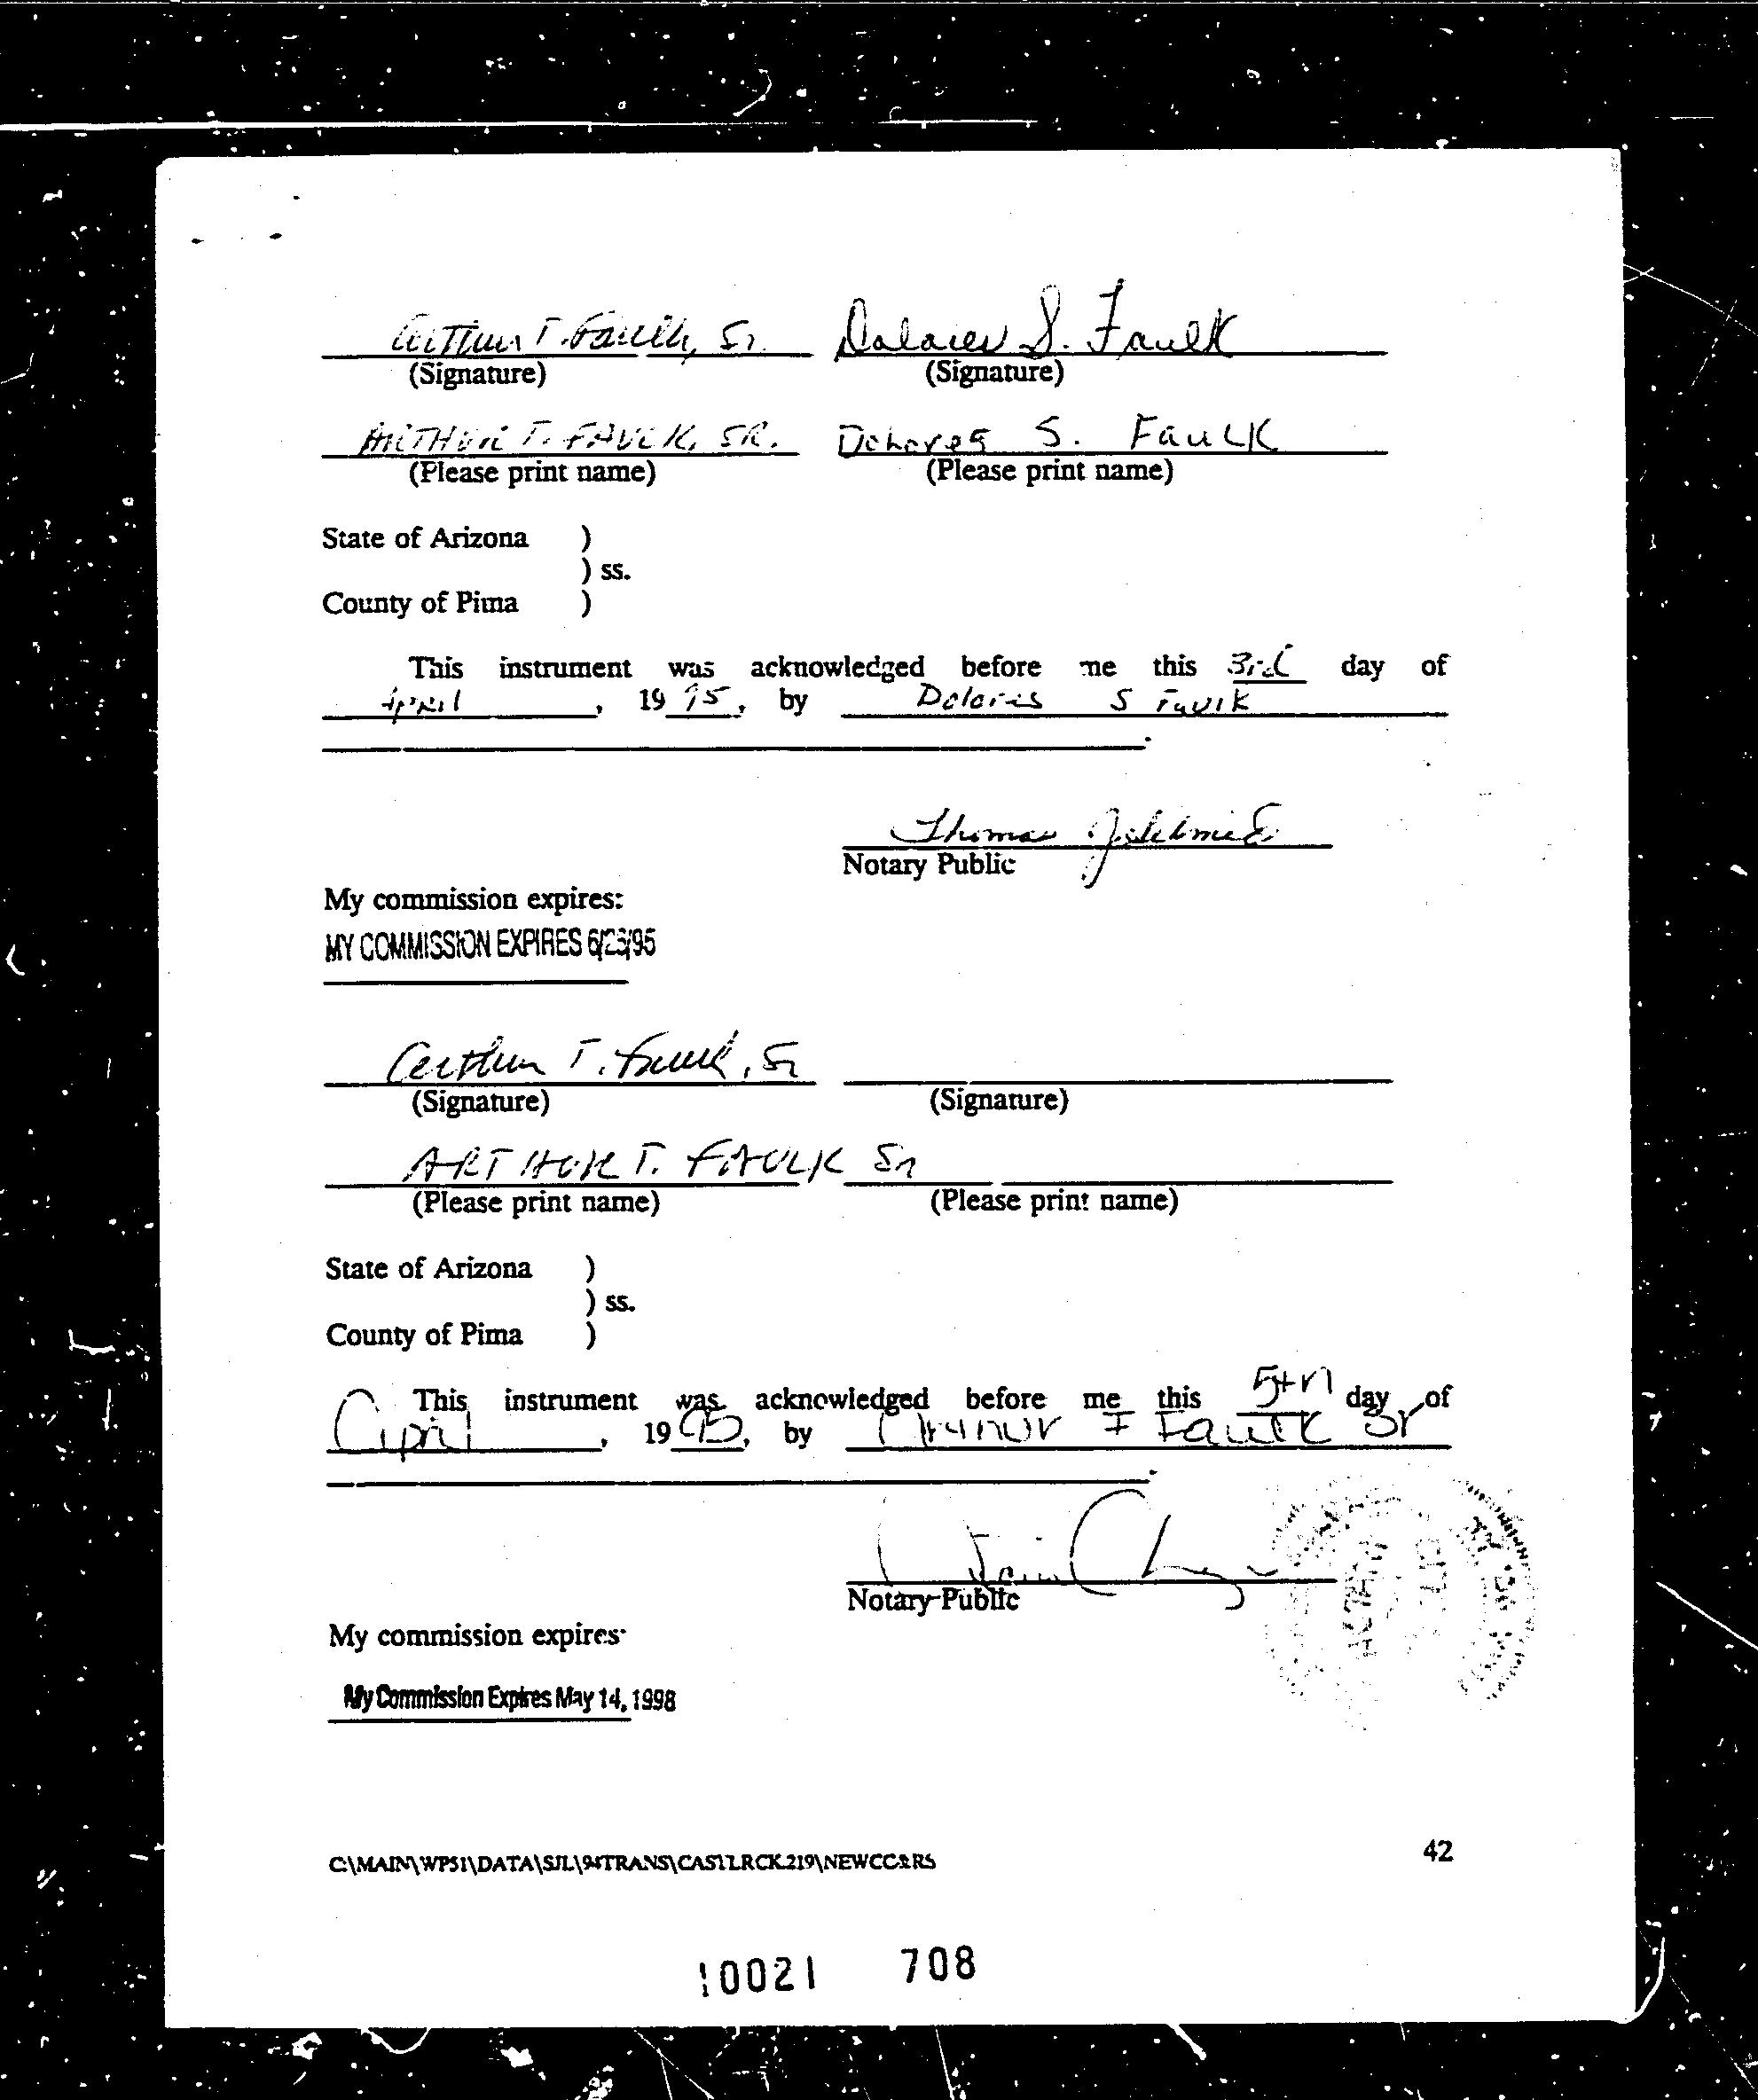 Arthur T. Faulk, Sr. Dolores S. Faulk
(Signature) (Signature)
ARTHUR T. FAULK, SR. Dolores S. Faulk
(Please print name) (Please print name)
State of Arizona )
) ss.
County of Pima )
This instrument was acknowledged before me this 3rd day of
April, 1995, by Dolores S Faulk
.
Thomas
Notary Public
My commission expires:
MY COMMISSION EXPIRES 6/23/95
Arthur T. Faulk, Sr
(Signature) (Signature)
ARTHUR T. FAULK Sr
(Please print name) (Please print name)
State of Arizona )
) ss.
County of Pima )
This instrument was acknowledged before me this 5th day of
April, 1995, by Arthur T Faulk Sr
.
Notary Public
My commission expires:
My Commission Expires May 14, 1998
C:\MAIN\WP51\DATA\SJL\94TRANS\CASTLRCK.219\NEWCC&RS 42
10021 708